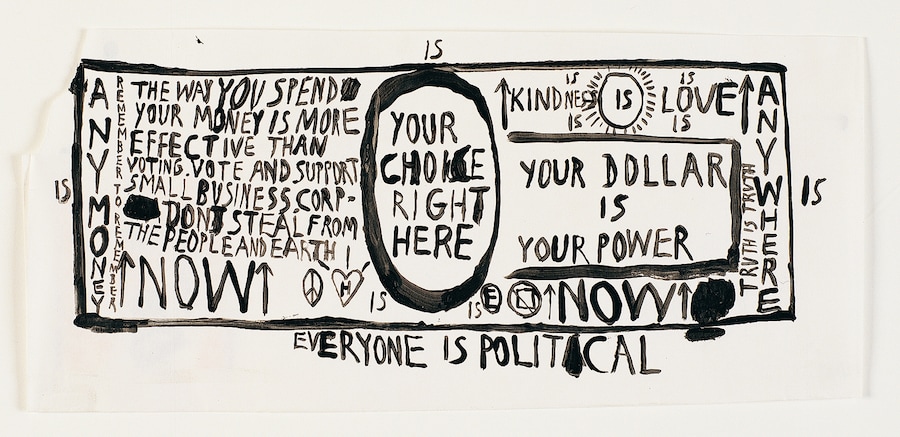 IS
ANY MONEY
REMEMBER TO REMEMBER
THE WAY YOU SPEND
YOUR MONEY IS MORE
EFFECTIVE THAN
VOTING. VOTE AND SUPPORT
SMALL BUSINESS. CORP-
DON'T STEAL FROM
THE PEOPLE AND EARTH
NOW
IS
IS
YOUR
CHOICE
RIGHT
HERE
IS
KINDNESS IS LOVE
IS
IS
IS
YOUR DOLLAR
IS
YOUR POWER
TRUTH IS TRUTH
ANYWHERE
IS
IS
E
NOW
EVERYONE IS POLITICAL